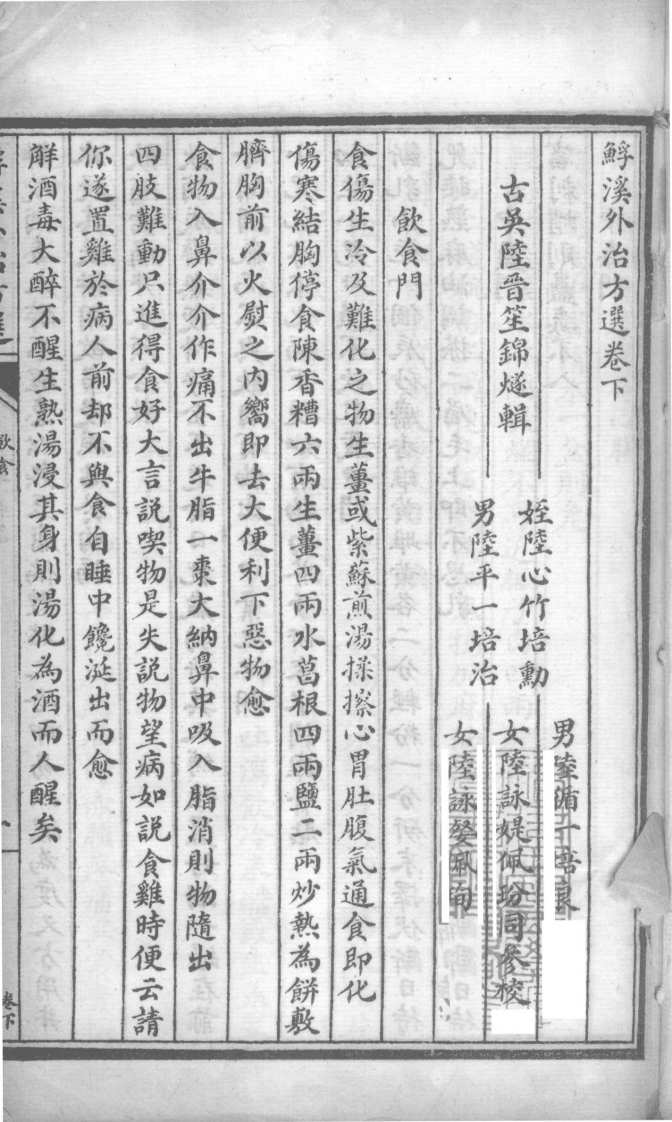 鯚溪外治方選卷下
古吳陸晉笙錦燧輯
姪陸心竹培勳
男陸平一培治
男陸循一培良
女陸詠媞佩玢同參校
女陸詠媻佩珣
飲食門
食傷生冷及難化之物生薑或紫蘇煎湯揉擦心胃肚腹氣通食即化
傷寒結胸停食陳香糟六兩生薑四兩水菖根四兩鹽二兩炒熱為餅敷
臍胸前以火熨之內嚮即去大便利下惡物愈
食物入鼻介介作痛不出牛脂一棗大納鼻中吸入脂消則物隨出
四肢難動只進得食好大言說喫物是失說物望病如說食雞時便云請
你遂置雞於病人前却不與食自睡中饞涎出而愈
解酒毒大醉不醒生熟湯浸其身則湯化為酒而人醒矣
飲食
卷下